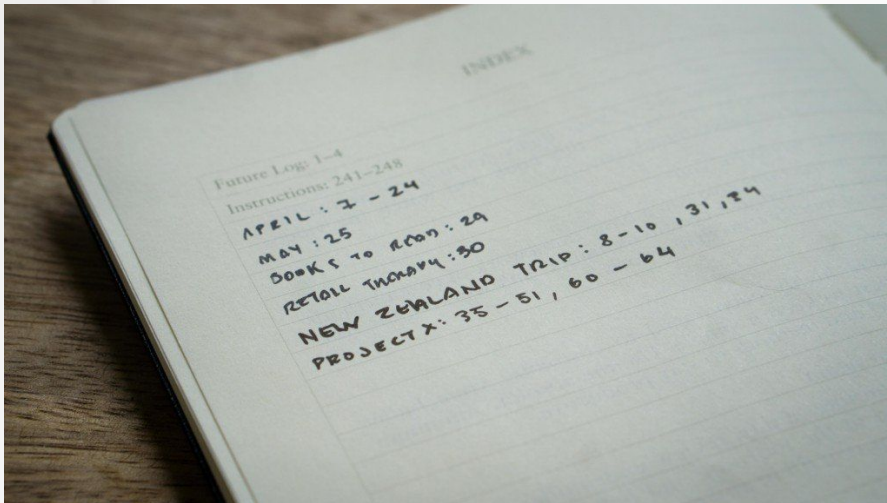 INDEX
Future Log: 1–4
Instructions: 241–248
APRIL : 7 - 24
MAY : 25
BOOKS TO READ : 29
RETAIL THERAPY : 30
NEW ZEALAND TRIP : 8 - 10 , 31 ,
PROJECT X : 35 - 51 , 60 - 64